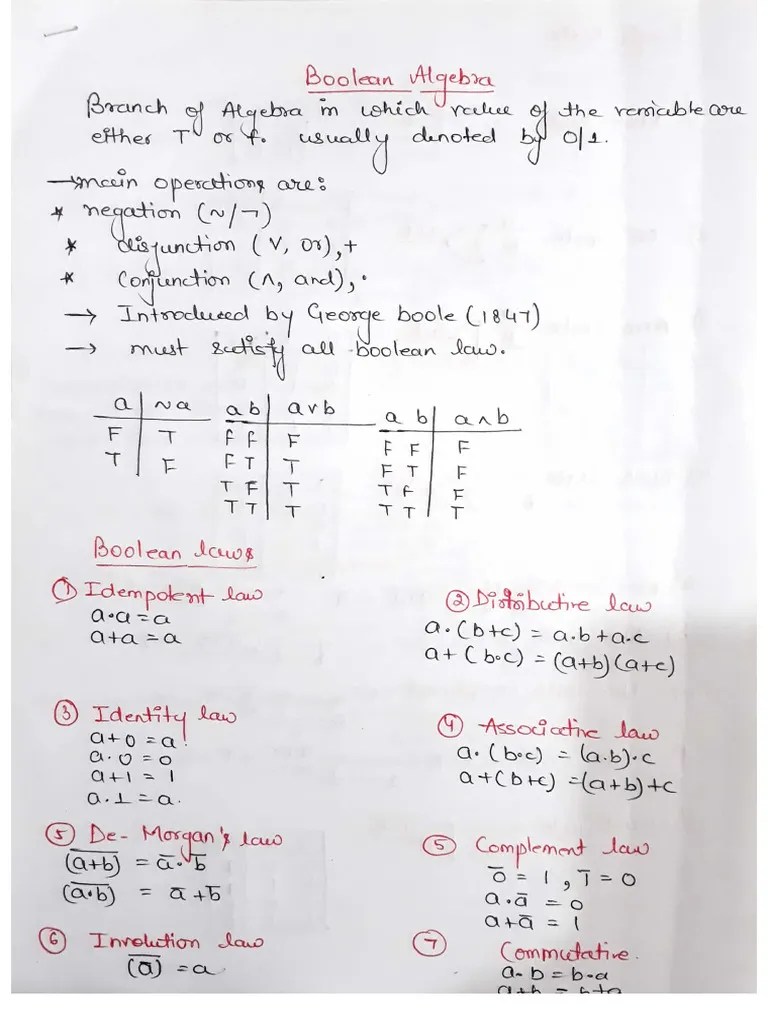 Boolean Algebra
Branch of Algebra in which value of the variable are
either T or f. usually denoted by 0/1.
→ main operations are:
* negation (~/¬)
* disjunction (V, or), +
* Conjunction (∧, and), ·
→ Introduced by George boole (1847)
→ must satisfy all boolean law.
a | ~a
F | T
T | F
a b | a∨b
F F | F
F T | T
T F | T
T T | T
a b | a∧b
F F | F
F T | F
T F | F
T T | T
Boolean laws
① Idempotent law
a·a = a
a+a = a
② Distributive law
a·(b+c) = a·b+a·c
a+(b·c) = (a+b)(a+c)
③ Identity law
a+0 = a
a·0 = 0
a+1 = 1
a·1 = a.
④ Associative law
a·(b·c) = (a·b)·c
a+(b+c) = (a+b)+c
⑤ De-Morgan's law
(a+b)̅ = a̅·b̅
(a·b)̅ = a̅+b̅
⑤ Complement law
0̅ = 1, 1̅ = 0
a·a̅ = 0
a+a̅ = 1
⑥ Involution law
(a̅)̅ = a
⑦ Commutative.
a·b = b·a
a+b = b+a